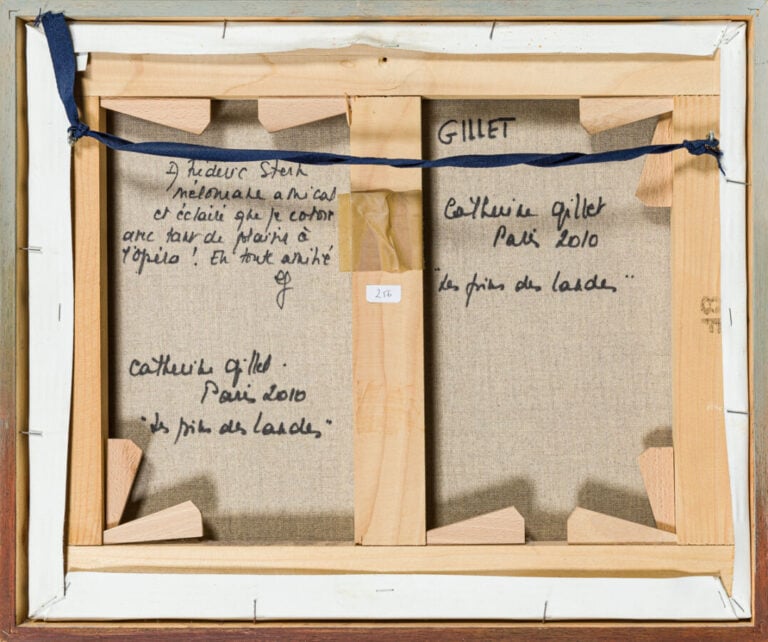 à Frédéric Stern
mélomane amical
et éclairé que je côtoie
avec tant de plaisir à
l'opéra ! En toute amitié
Catherine Gillet.
Paris 2010
"Les pins des landes"
256
GILLET
Catherine Gillet
Paris 2010
"Les pins des landes"